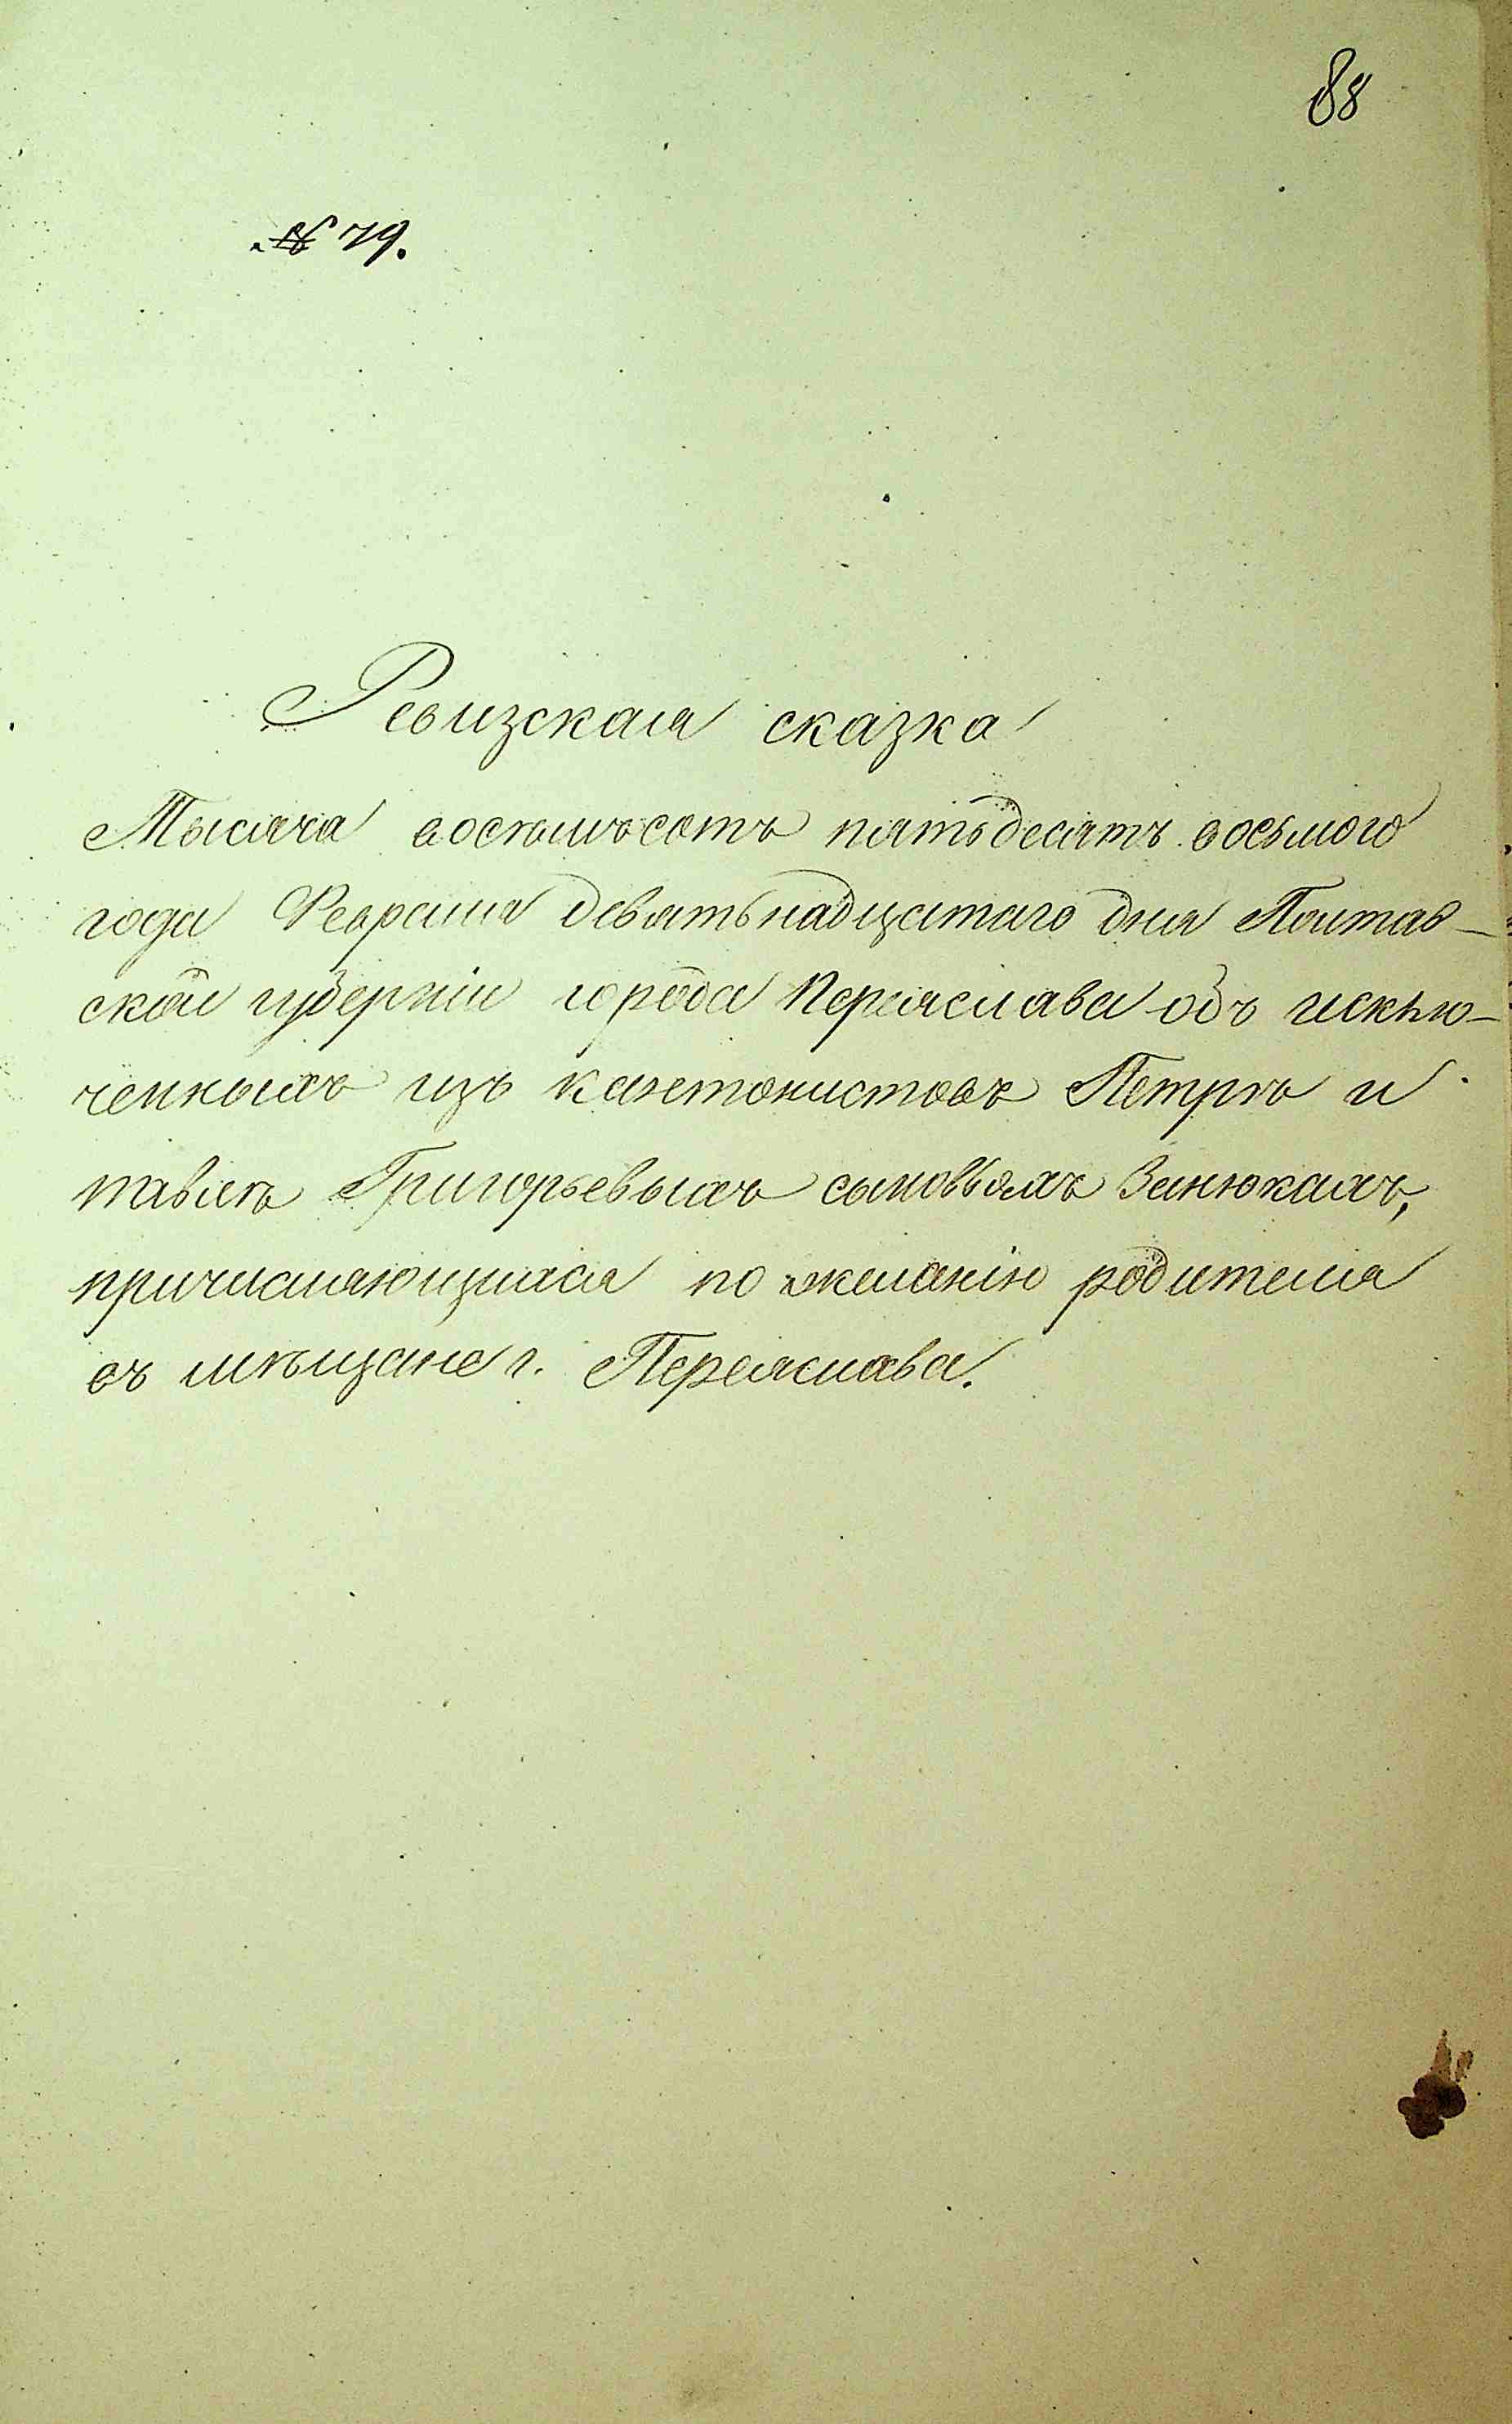 88
№ 79.
Ревизская сказка
Тысяча восемьсотъ пятьдесятъ восьмого
года Февраля девятьнадцатаго дня Полтав-
ской губерніи города Переяслава объ исклю-
ченныхъ изъ кантонистовъ Петрѣ и
Павлѣ Григорьевыхъ сыновьяхъ Зинюкахъ,
причисляющихся по желанію родителя
въ мѣщане г. Переяслава.